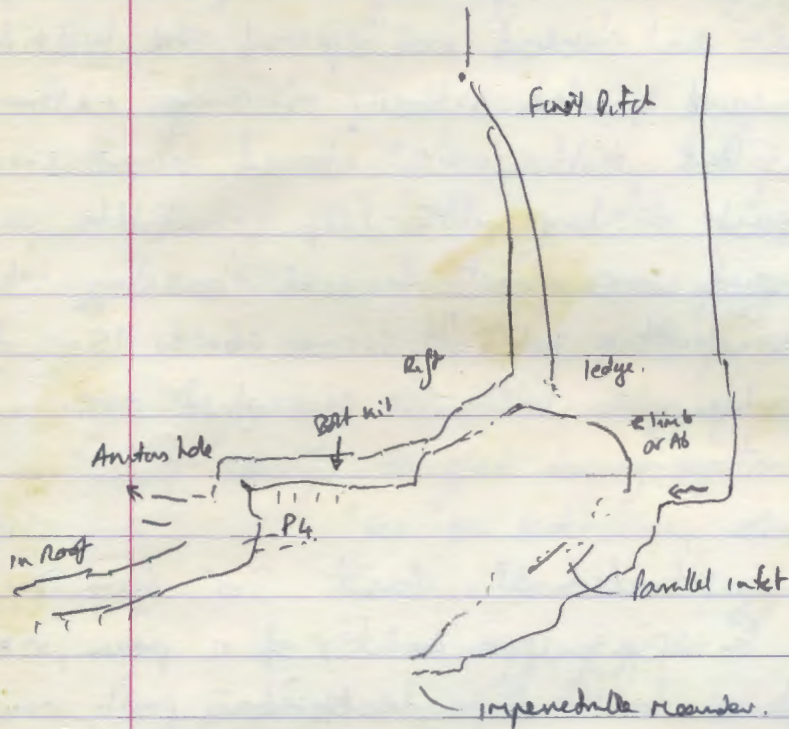 Final Pitch
Rift
ledge.
Bolt Kit
climb
or Ab
hole
P4
in Roof
Parallel inlet
impenetrable meander.